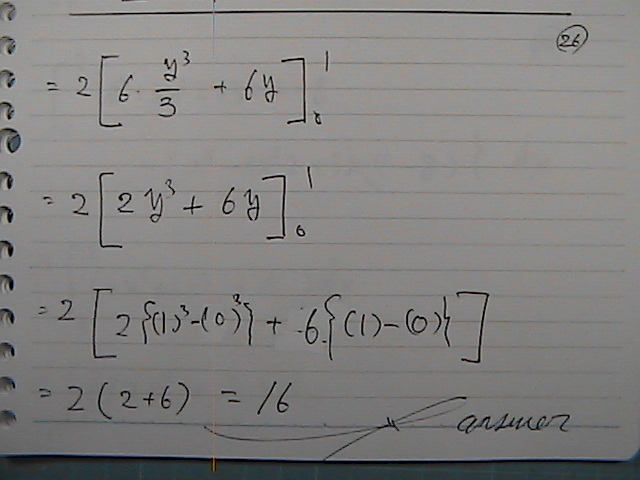 26
= 2 [ 6 · y³/3 + 6y ]₀¹
= 2 [ 2y³ + 6y ]₀¹
= 2 [ 2{(1)³-(0)³} + 6{(1)-(0)} ]
= 2(2+6) = 16
answer